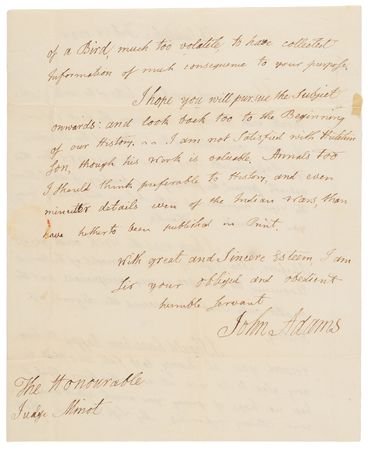 of a Bird, much too volatile, to have collected
Information of much consequence to your purpose.
I hope you will pursue the Subject
onwards: and look back too to the Beginning
of our History. I am not Satisfied with Hutchin
Son, though his work is valuable. Annals too
I should think preferable to History, and even
minuter details even of the Indian Wars, than
have hitherto been published in Print.
With great and Sincere Esteem I am
Sir your obliged and obedient
humble Servant
John Adams
The Honourable
Judge Minot